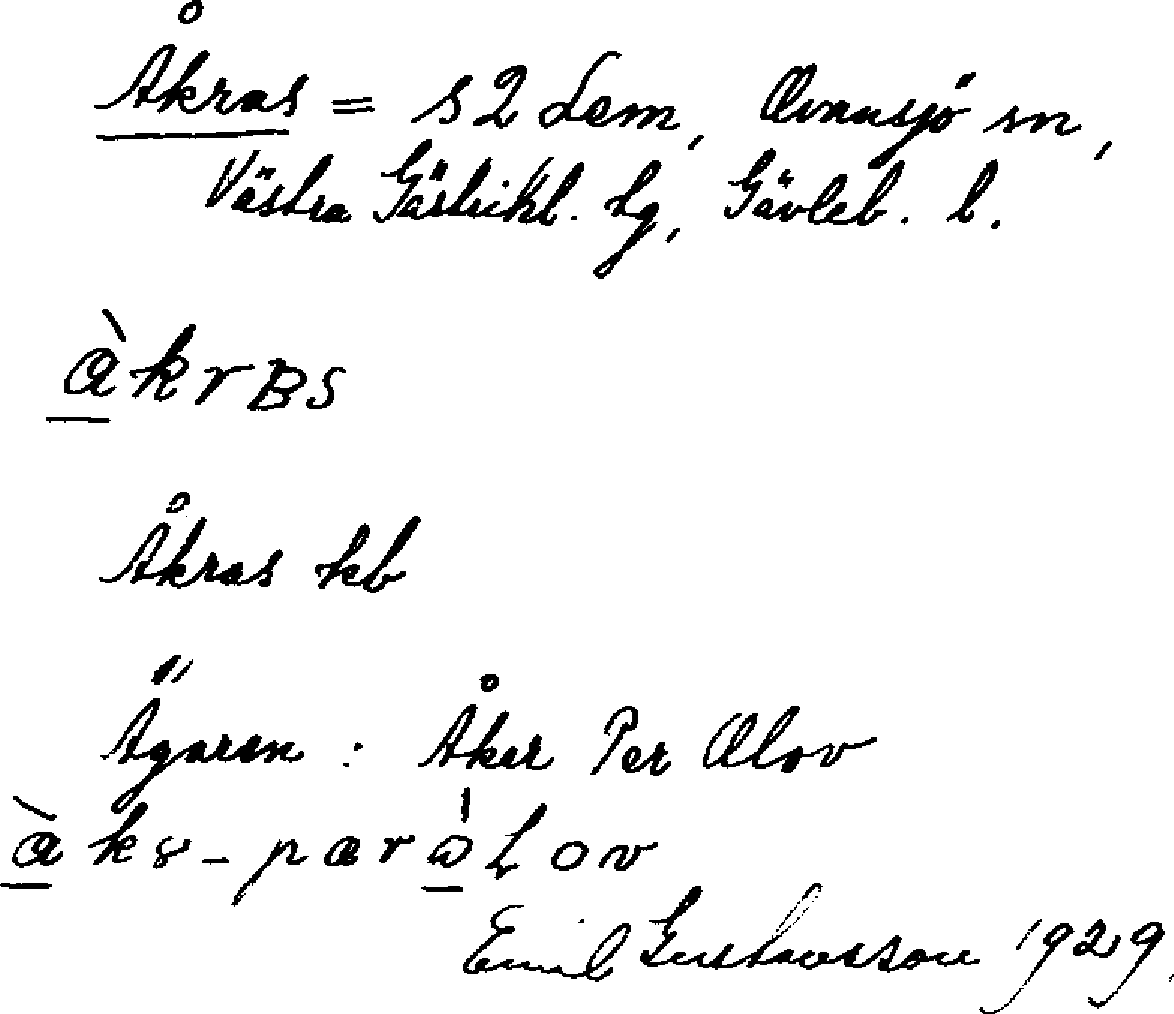 Åkras = S2 Lem, Ovansjö sn,
Västra Gästrikl. tg, Gävleb. l.
àkrBS
Åkras kb
Ägaren : Åker Per Olov
àk8-pær òLov
Emil Gustavsson 1929.